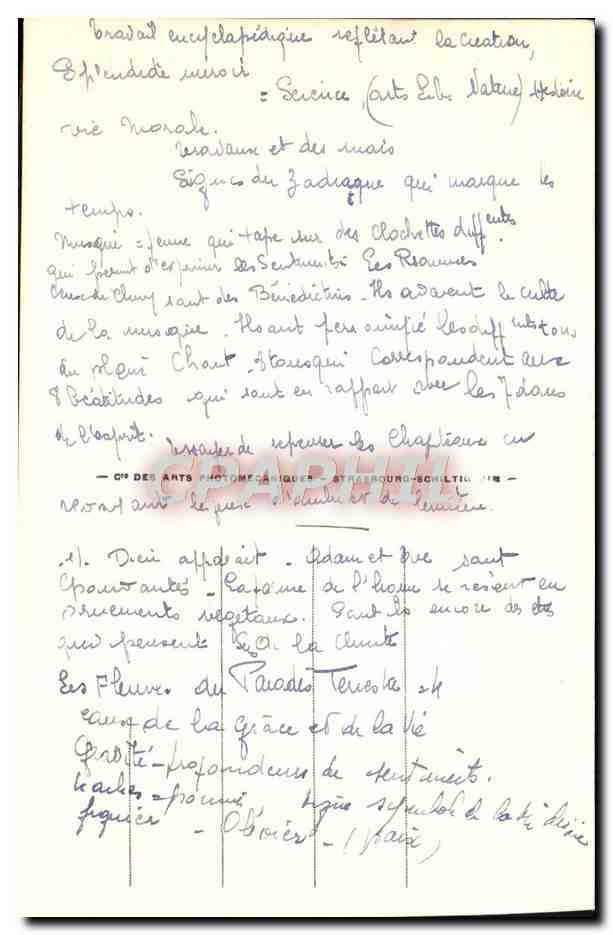 Travail encyclopédique reflétant la création,
Splendide miroir
= Science (arts Lib. Nature) Histoire
vie Morale.
Travaux et des mois
Signes du Zodiaque qui marque les
temps.
Musique = femme qui tape sur des clochettes diff entes
qui permet d'exprimer les Sentiments. Les
de Cluny sont des Bénédictins. Ils avaient le culte
de la musique. Ils ont personnifié les diff ents tons
du plain Chant. 8 tons qui correspondent aux
8 béatitudes qui sont en rapport avec les 7 dons
de l'esprit. les Chapiteaux en
— Cie DES ARTS PHOTOMECANIQUES - STRASBOURG-SCHILTIG
CPAPHIL.COM
le jeux d'ombre et de lumière.
1). Dieu apparait. Adam et Eve sont
épouvantés - de l'homme se
ornements végétaux. Sont ils encore des
qui pensent de la Chute
Les Fleuves du Paradis Terrestre = 4
eaux de la Grâce et de la Vie
- profondeur de sentiments.
= pommier Vigne symbole de la vie divine
figuier - Olivier - (paix)